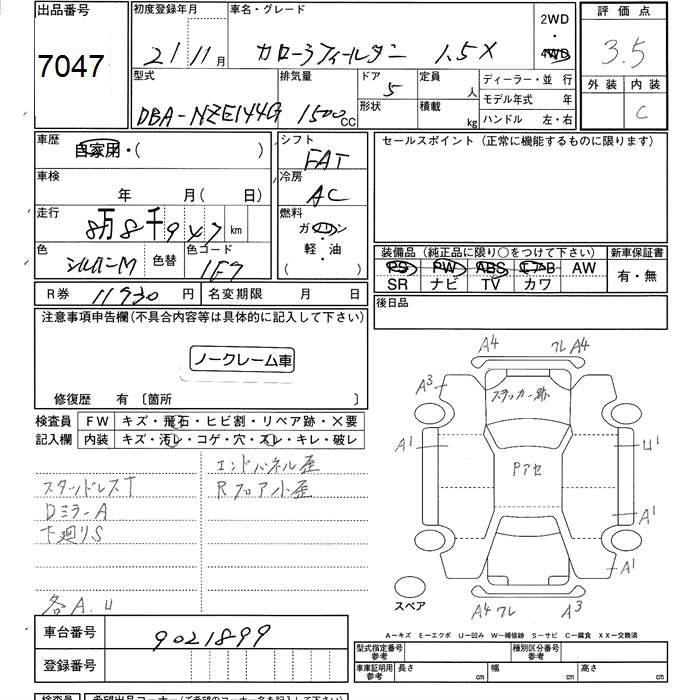 出品番号
7047
初度登録年月
21 11月
車名・グレード
カローラフィールダー 1.5X
2WD
・
4WD
評価点
3.5
外装 内装
C
型式
DBA-NZE144G
排気量
1500cc
ドア
5
形状
定員
人
積載
kg
ディーラー・並 行
モデル年式 年
ハンドル 左・右
車歴
自家用・( )
車検
年 月( 日)
走行
8万8千947km
色
シルバーM
色替
色コード
1F7
シフト
FAT
冷房
AC
燃料
ガソリン
軽・油
( )
セールスポイント(正常に機能するものに限ります)
装備品(純正品に限り○をつけて下さい)
PS PW ABS エアB AW
SR ナビ TV カワ
新車保証書
有・無
R券 11930円
名変期限 月 日
後日品
注意事項申告欄(不具合内容等は具体的に記入して下さい)
ノークレーム車
修復歴 有〔箇所 〕
検査員
記入欄
FW キズ・飛石・ヒビ割・リペア跡・×要
内装 キズ・汚レ・コゲ・穴・スレ・キレ・破レ
エンドパネル歪
スタッドレスT
Rフロア小歪
DミラーA
下廻りS
各A.U
A4 フレ A4
A3
ステッカー跡
A1
U1
Pアセ
A1
A1
A4 フレ A3
スペア
A-キズ E-エクボ U-凹み W-補修跡 S-サビ C-腐食 XX-交換済
車台番号
9021899
登録番号
型式指定番号
参考
種別区分番号
参考
車庫証明用
参考
長さ cm
幅 cm
高さ cm
検査員
希望出品コーナー(ご希望のコーナー名を記入下さい)